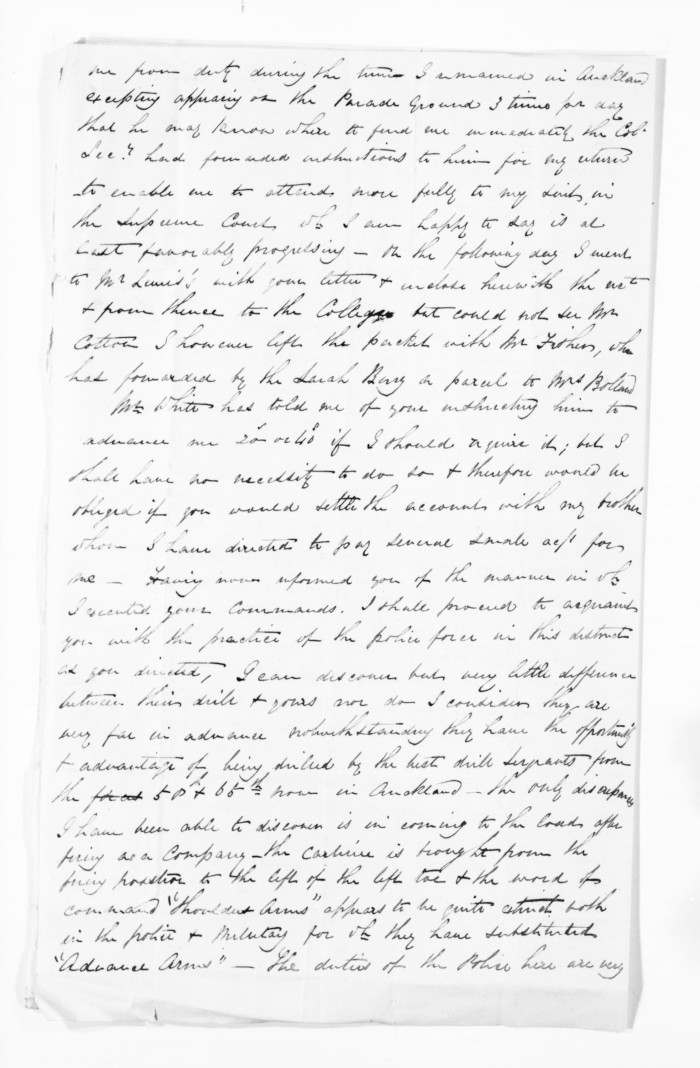 me from duty during the time I remained in Auckland
excepting appearing on the Parade Ground 3 times per day
that he may know where to find me immediately the Col.
Secy. had forwarded instructions to him for my return
to enable me to attend more fully to my suit in
the Supreme Court wh I am happy to say is at
last favorably progressing — On the following day I went
to Mr Lewis's with your letter & inclose herewith the
& from thence to the College but could not see Mr
Cotton I however left the packet with Mr Fisher, who
has forwarded by the Sarah Berry a parcel to Mrs Bolland
Mr White has told me of your instructing him to
advance me 20/ or 40/ if I should require it; but I
shall have no necessity to do so & therefore would be
obliged if you would settle the account with my brother
whom I have directed to pay several small acs/ for
me — Having now informed you of the manner in wh
I executed your commands. I shall proceed to acquaint
you with the practice of the police force in this district
as you directed, I can discover but very little difference
between their drill & yours nor do I consider they are
very far in advance notwithstanding they have the opportunity
& advantage of being drilled by the best drill sergeants from
the 58th & 65th now in Auckland — the only discrepancy
I have been able to discover is in coming to the Load after
firing as a Company — the carbine is brought from the
firing position to the left of the left toe & the word of
command "Shoulder Arms" appears to be quite extinct both
in the police & Military for wh they have substituted
"Advance Arms" — The duties of the Police here are very